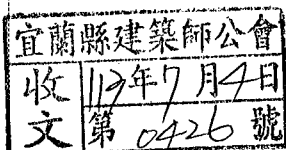 宜蘭縣建築師公會
收文
113年7月4日
第0426號